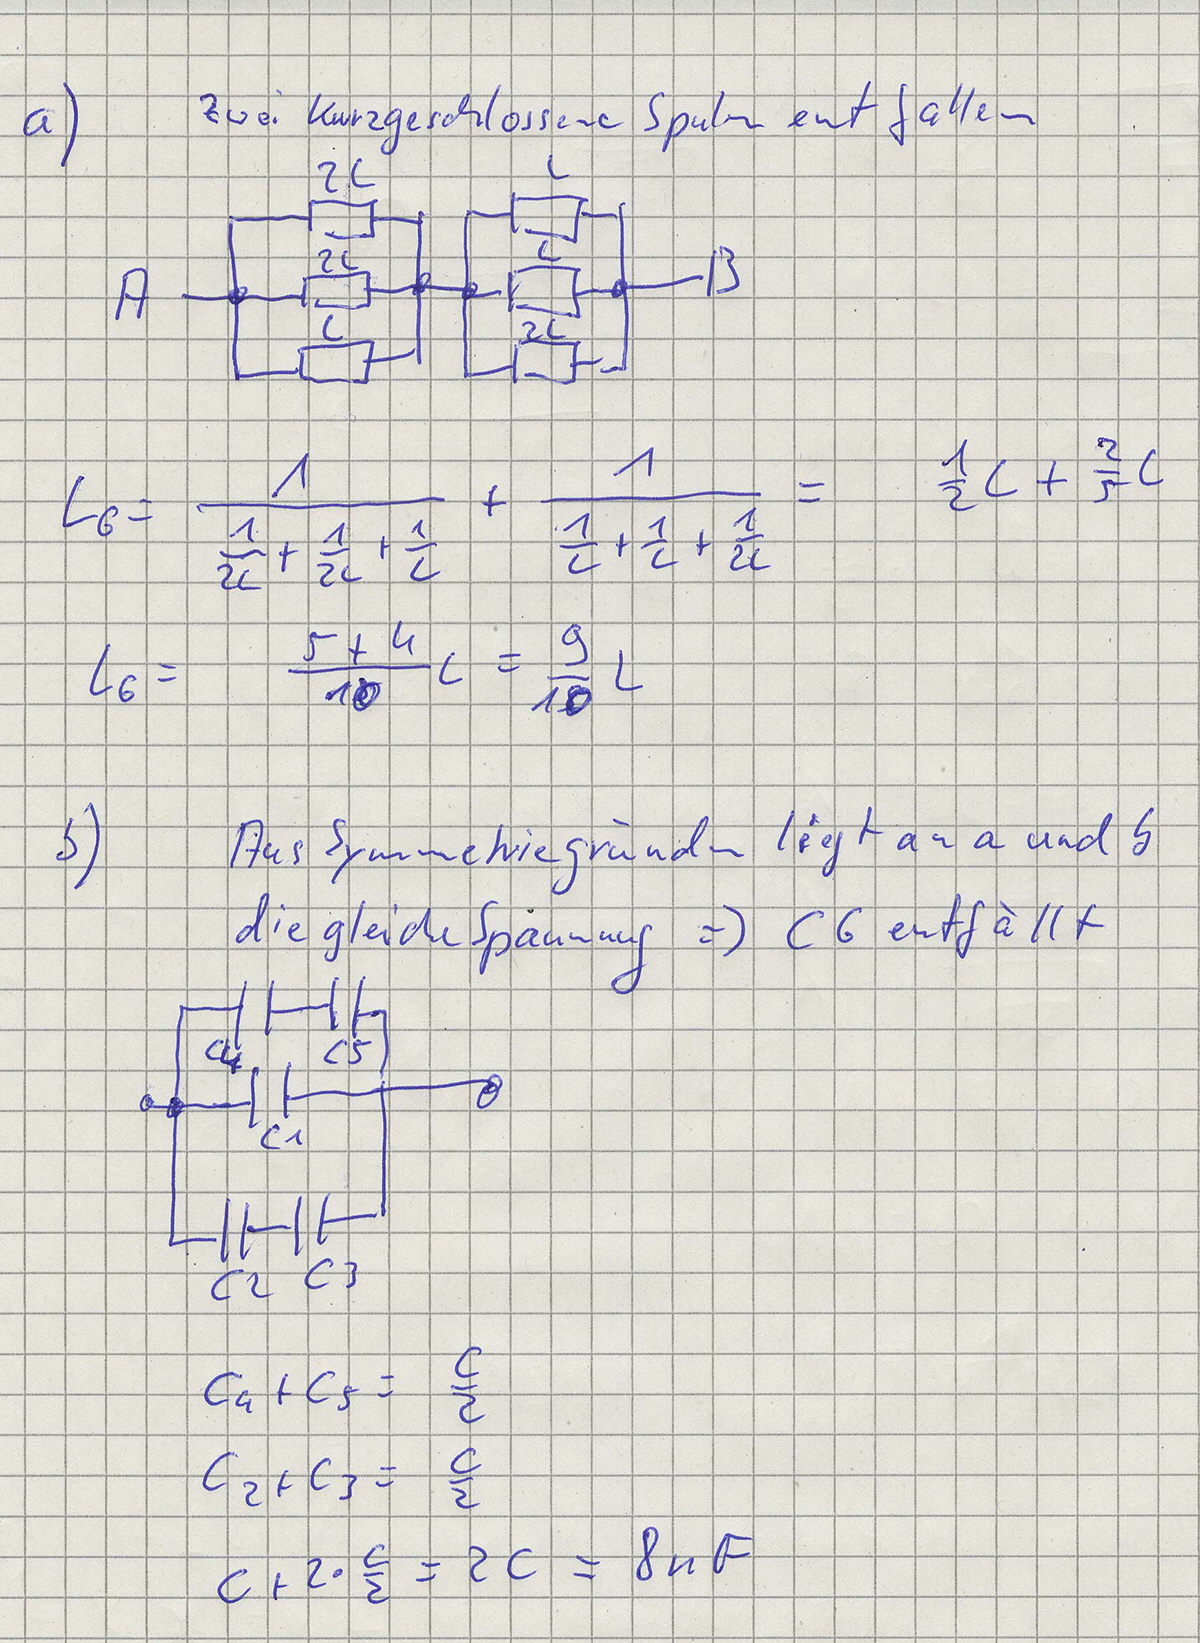 a) Zwei kurzgeschlossene Spulen entfallen
2L L
A 2L L B
L 2L
L_G = 1/(1/2L + 1/2L + 1/L) + 1/(1/L + 1/L + 1/2L) = 1/2 L + 2/5 L
L_G = (5+4)/10 L = 9/10 L
b) Aus Symmetriegründen liegt an a und b
die gleiche Spannung => C6 entfällt
C4 C5
C1
C2 C3
C4 + C5 = C/2
C2 + C3 = C/2
C + 2·C/2 = 2C = 8nF